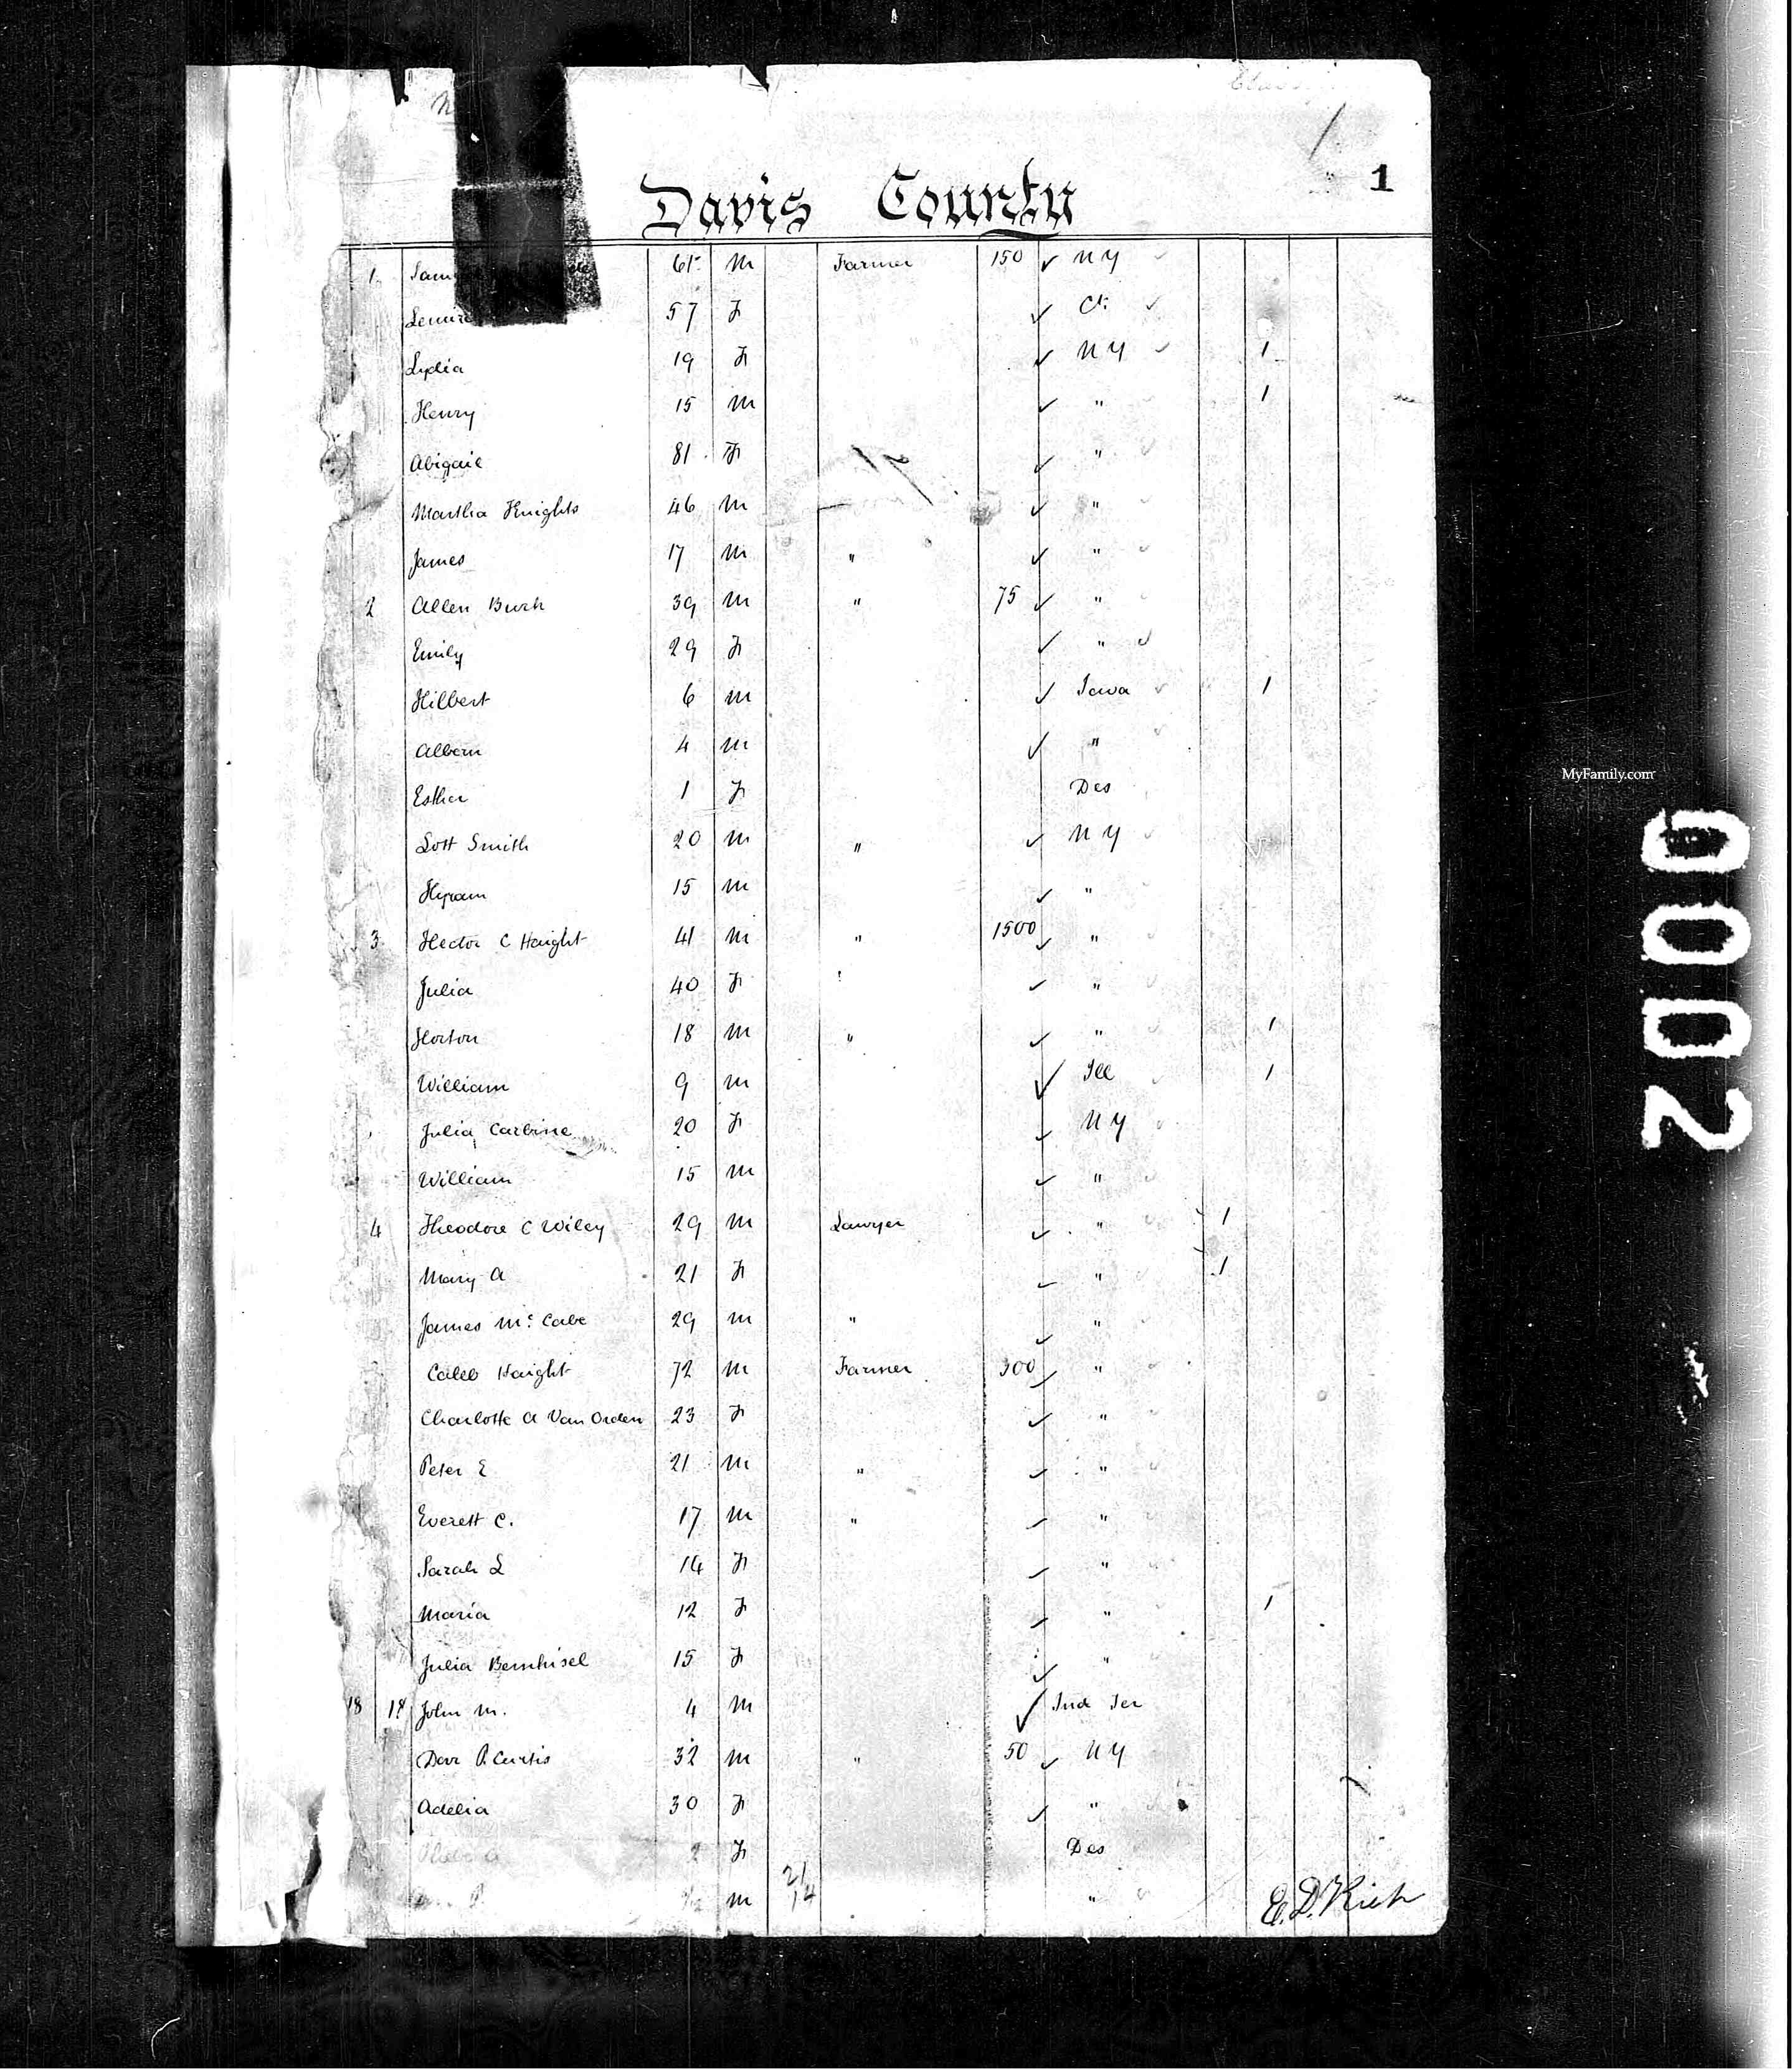 1
Davis County
1 Sam 61 M Farmer 150 ✓ N Y ✓
57 F ✓ Ct. ✓
Lydia 19 F ✓ N Y ✓ 1
Henry 15 M ✓ " ✓ 1
Abigail 81 F ✓ " ✓
Martha Knights 46 M ✓ " ✓
James 17 M " ✓ " ✓
2 Allen Burk 39 M " 75 ✓ " ✓
Emily 29 F ✓ " ✓
Hilbert 6 M ✓ Iowa ✓ 1
Albern 4 M ✓ " ✓
Esther 1 F Des
Lott Smith 20 M " ✓ N Y ✓
Hyram 15 M ✓ " ✓
3 Hector C Haight 41 M " 1500 ✓ " ✓
Julia 40 F ✓ " ✓
Horton 18 M " ✓ " ✓ 1
William 9 M ✓ Ill ✓ 1
Julia Carbine 20 F ✓ N Y ✓
William 15 M ✓ " ✓
4 Theodore C Wiley 29 M Lawyer ✓ " ✓ 1
Mary A 21 F ✓ " ✓ 1
James Mc Cabe 29 M " ✓ "
Caleb Haight 72 M Farmer 300 ✓ " ✓
Charlotte A Van Orden 23 F ✓ " ✓
Peter E 21 M " ✓ " ✓
Everett C. 17 M " ✓ " ✓
Sarah L 14 F ✓ " ✓
Maria 12 F ✓ " ✓ 1
Julia Bernhisel 15 F ✓ "
18 18 John M. 4 M ✓ Ind Ter
Dor P. Curtis 32 M " 50 ✓ N Y
Adelia 30 F ✓ " ✓
2 F Des
M 21 14 " ✓
E. D. Rich
MyFamily.com
0002